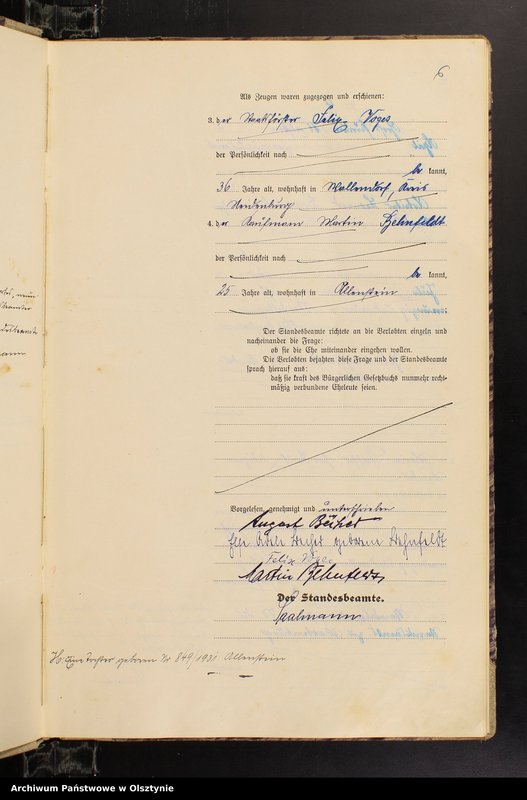 6
Als Zeugen waren zugezogen und erschienen:
3. der Staatsförster Felix Voges
der Persönlichkeit nach
be kannt,
36 Jahre alt, wohnhaft in Wallendorf, Kreis
Neidenburg
4. der Kaufmann Martin Behnfeldt
der Persönlichkeit nach
be kannt,
25 Jahre alt, wohnhaft in Allenstein
Der Standesbeamte richtete an die Verlobten einzeln und
nacheinander die Frage:
ob sie die Ehe miteinander eingehen wollen.
Die Verlobten bejahten diese Frage und der Standesbeamte
sprach hierauf aus:
daß sie kraft des Bürgerlichen Gesetzbuchs nunmehr recht-
mäßig verbundene Eheleute seien.
Vorgelesen, genehmigt und unterschrieben
August
geborene Behnfeldt
Felix Voges
Martin Behnfeldt
Der Standesbeamte.
Saalmann
Eine Tochter geboren Nr 849/1931 Allenstein
Archiwum Państwowe w Olsztynie